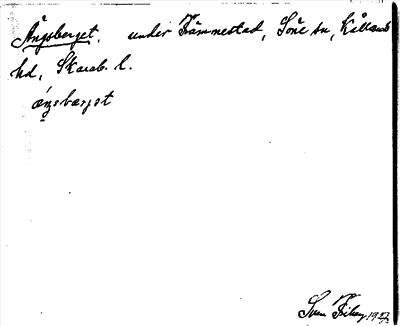 Ängsberget, under Främmestad, Söne sn, Kållands
hd, Skarab. l.
ängsbærjet
Sven Fiberg 1927